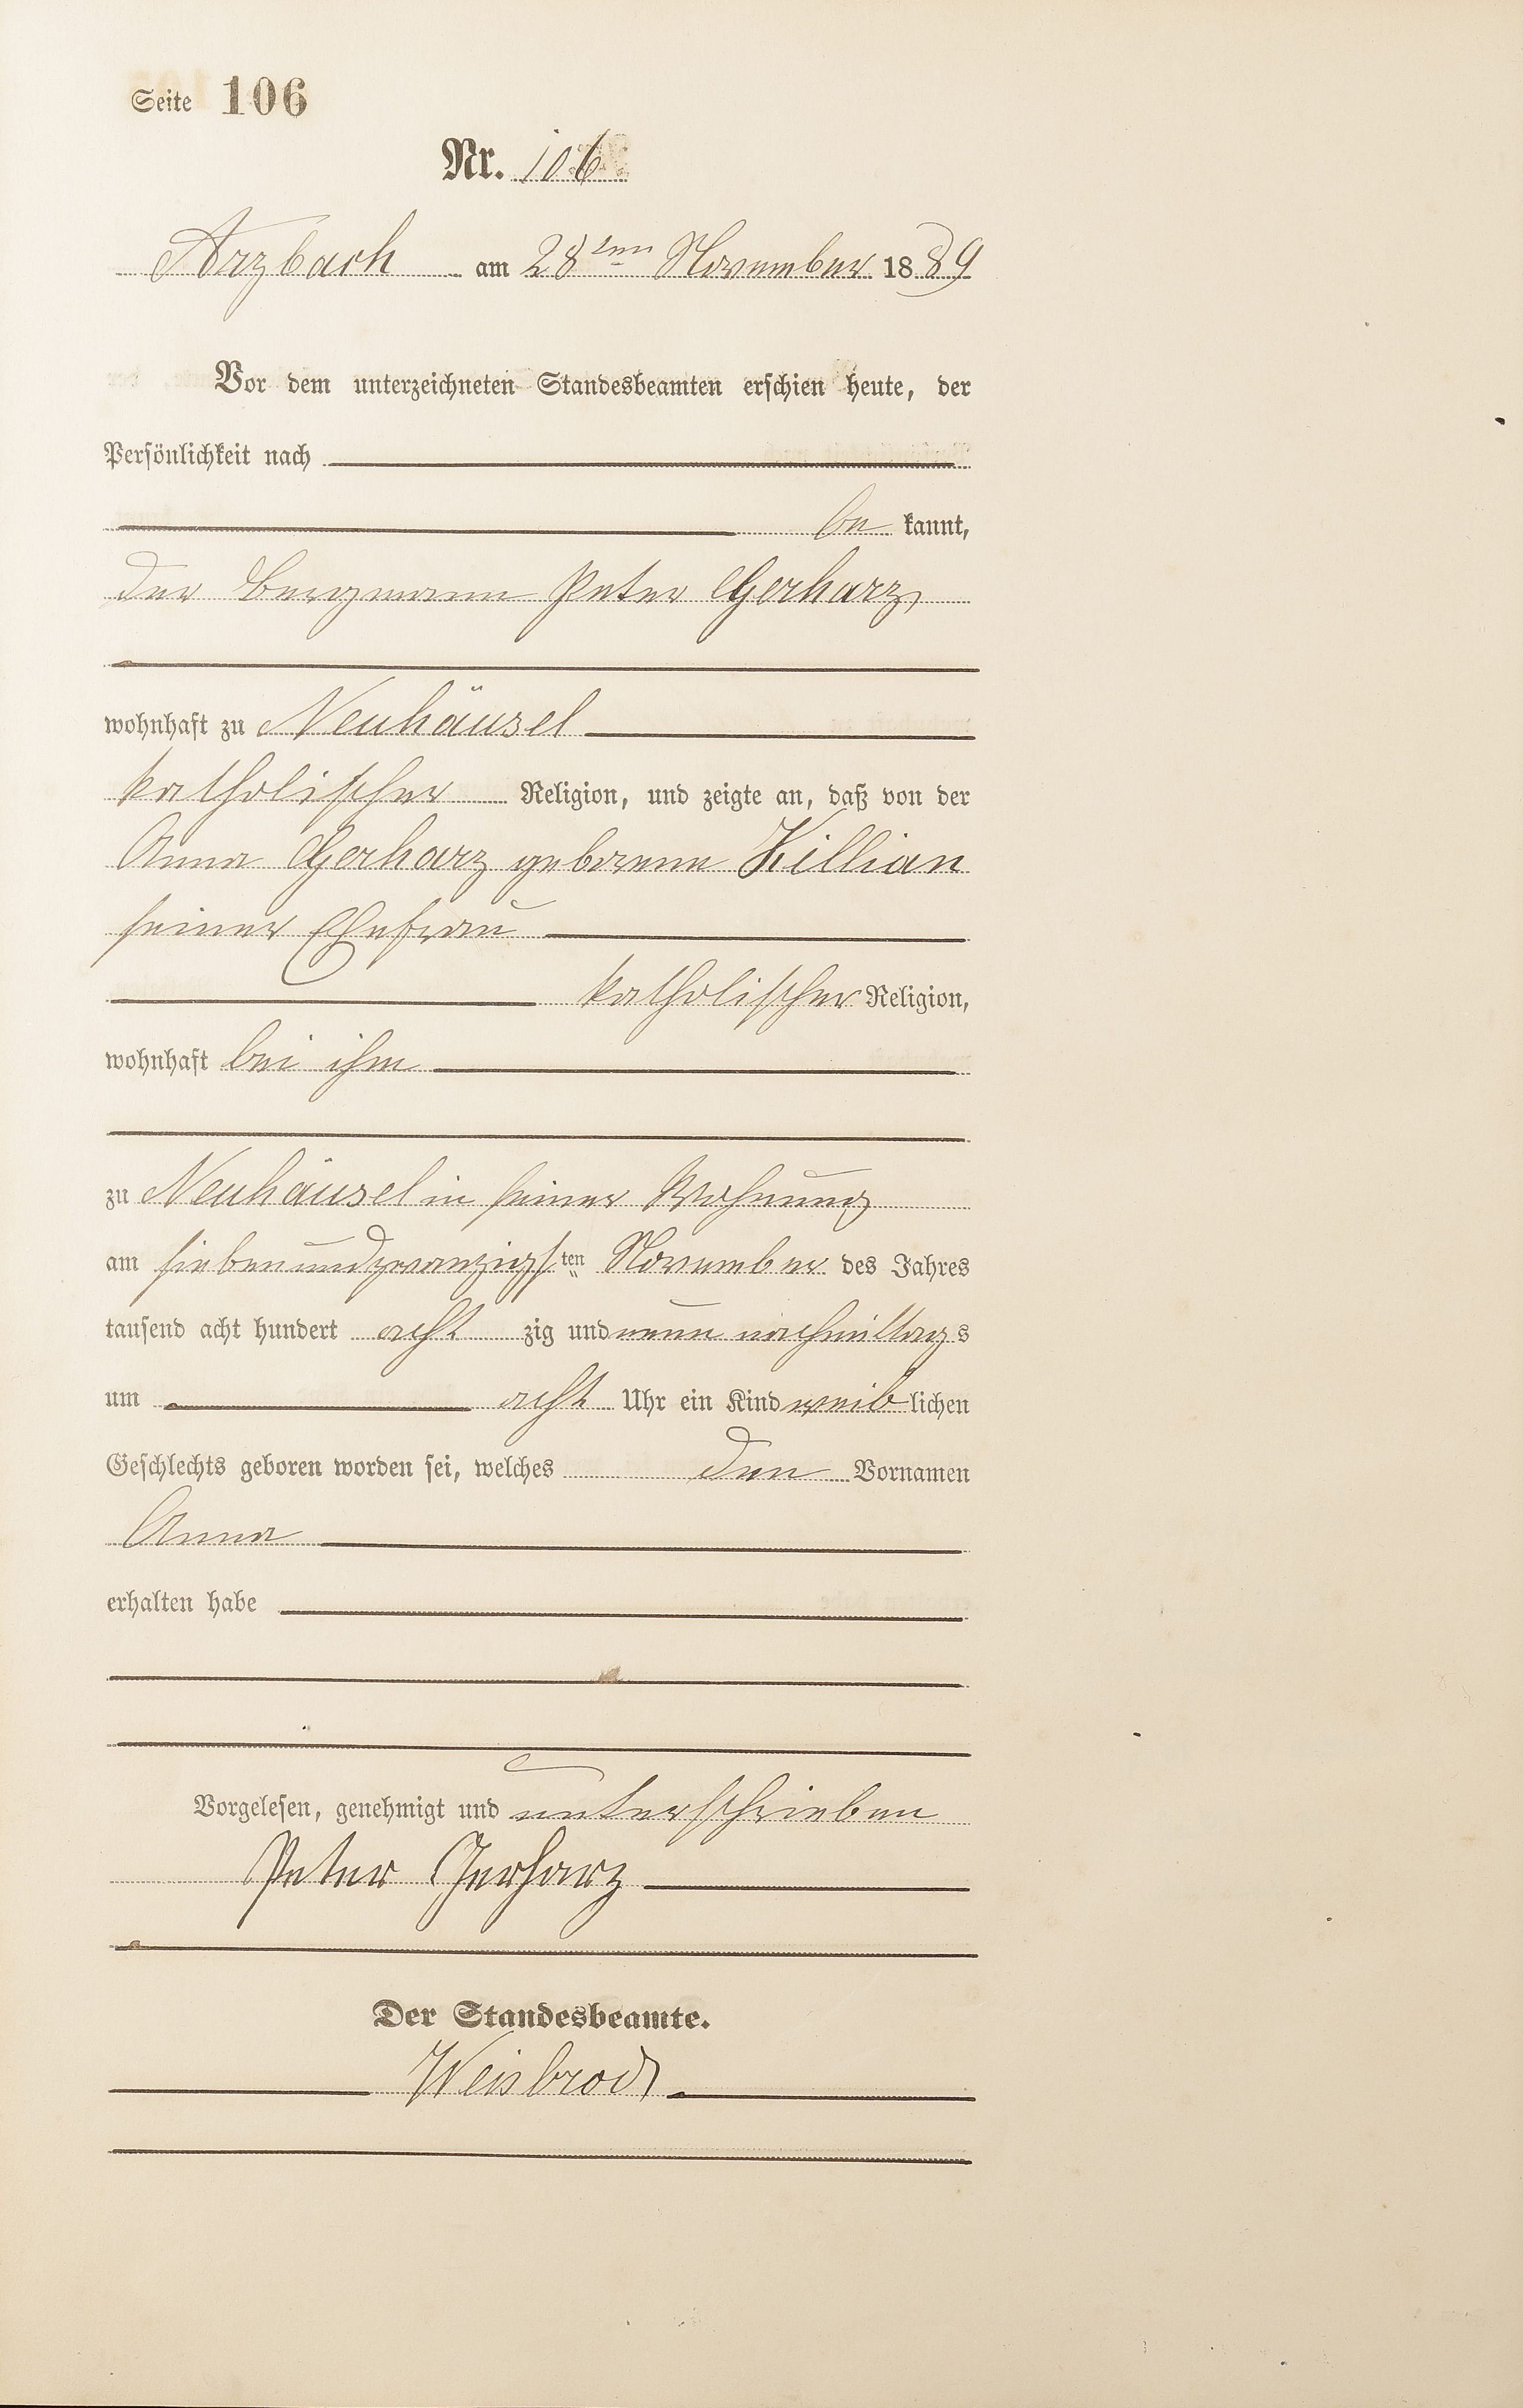 Seite 106
Nr. 106
Arzbach am 28ten November 1889
Vor dem unterzeichneten Standesbeamten erschien heute, der
Persönlichkeit nach
be kannt,
der Bergmann Peter Gerharz
wohnhaft zu Neuhäusel
katholischer Religion, und zeigte an, daß von der
Anna Gerharz geborene Killian
seiner Ehefrau
katholischer Religion,
wohnhaft bei ihm
zu Neuhäusel in seiner Wohnung
am siebenundzwanzigsten November des Jahres
tausend acht hundert acht zig und neun nachmittags
um acht Uhr ein Kind weiblichen
Geschlechts geboren worden sei, welches den Vornamen
Anna
erhalten habe
Vorgelesen, genehmigt und unterschrieben
Peter Gerharz
Der Standesbeamte.
Weisbrod